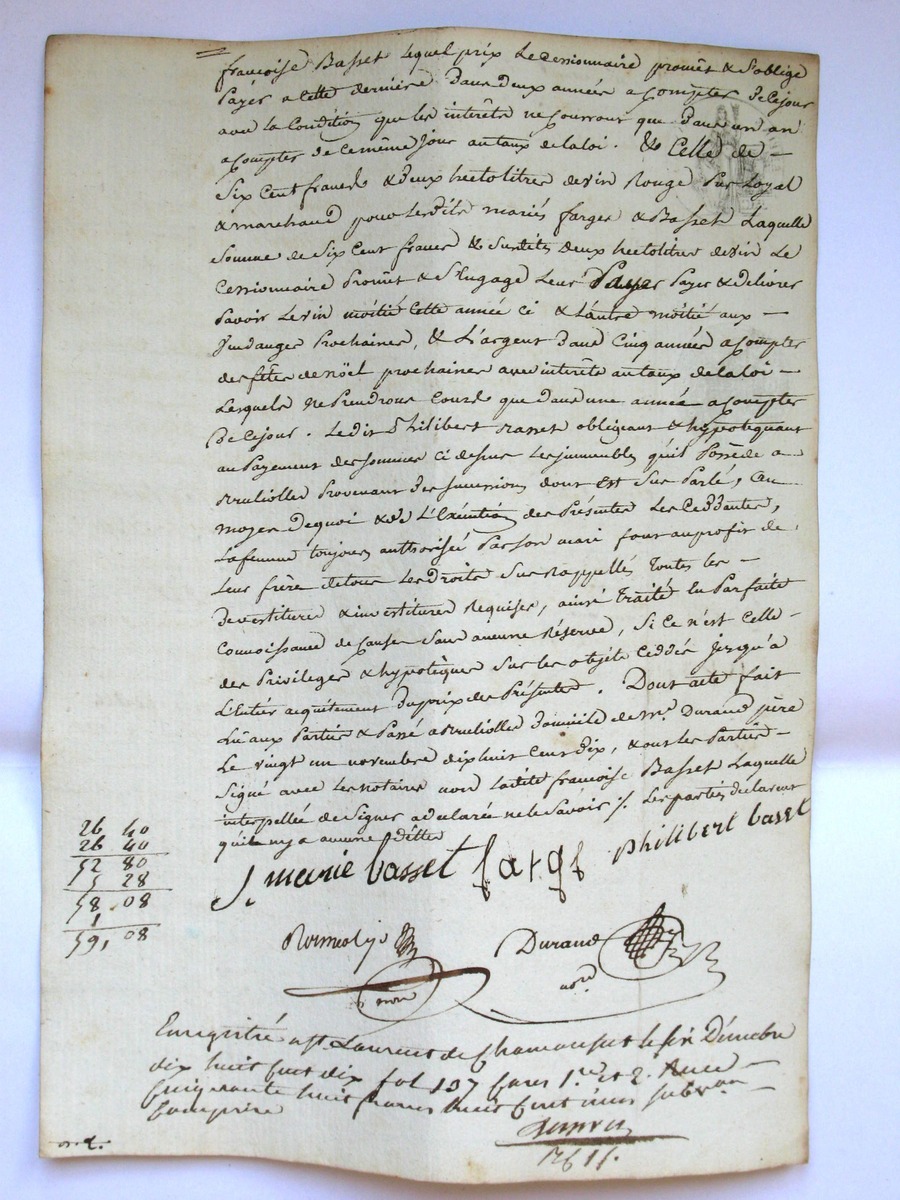 françoise Basset lequel prix le cessionnaire promet & s'oblige
Payer a cette derniere dans deux années a compter de ce jour
avec la Condition que les interêts ne courront que dans un an
a compter de ce même jour au taux de la loi. & Celle de —
Six Cent francs & deux hectolitres de vin Rouge Pur Loyal
& marchand pour lesdits mariés farge & Basset Laquelle
Somme de Six Cent francs & susdits deux hectolitres de vin Le
Cessionnaire Promet & S'Engage Leur Payer & delivrer
Savoir Le vin moitié Cette année ci & L'autre moitié aux —
Vendanges Prochaines, & L'argent dans Cinq années a Compter
des fêtes de nöel prochaines avec interêts au taux de la loi —
Lesquels ne Prendront Cours que dans une année a Compter
de Ce jour. Ledit Philibert Basset obligeant & hypotéquant
au Payement des sommes ci dessus Les immeubles qu'il Possède a
Provenant des successions dont Est Sus Parlé, Au
moyen dequoi & de L'Exécution des Présentes Les Ceddantes,
La femme toujours authorisée Par son mari font au profit de
Leur frère de tous Les Droits Sus Rappellés toutes les —
Devestitures & investitures Requises, ainsi traité En Parfaite
Connoissance de Cause Sans aucune Réserve, Si Ce n'est Celle —
des Privileges & hypotèques Sur les objets Ceddés jusqu'à
L'Entier acquittement du prix des Présentes. Dont acte fait
Lû aux Parties & Passé a domicile de Mr. Durand père
Le vingt un novembre dix huit Cent dix, & ont les Parties —
Signé avec les notaires non ladite françoise Basset Laquelle
interpellée de Signer a déclaré ne le Savoir /. Les parties declarent
qu'il n'y a aucune dettes
J. marie basset farge philibert basset
26 40
26 40
52 80
5 28
58,08
1
59,08
Durand
nore
notre
Enregistré a St. Laurent de Chamousset le six Décembre
dix huit cent dix fol 137 cases 1re et 2. Recu
cinquante huit francs huit centimes subvon
comprise